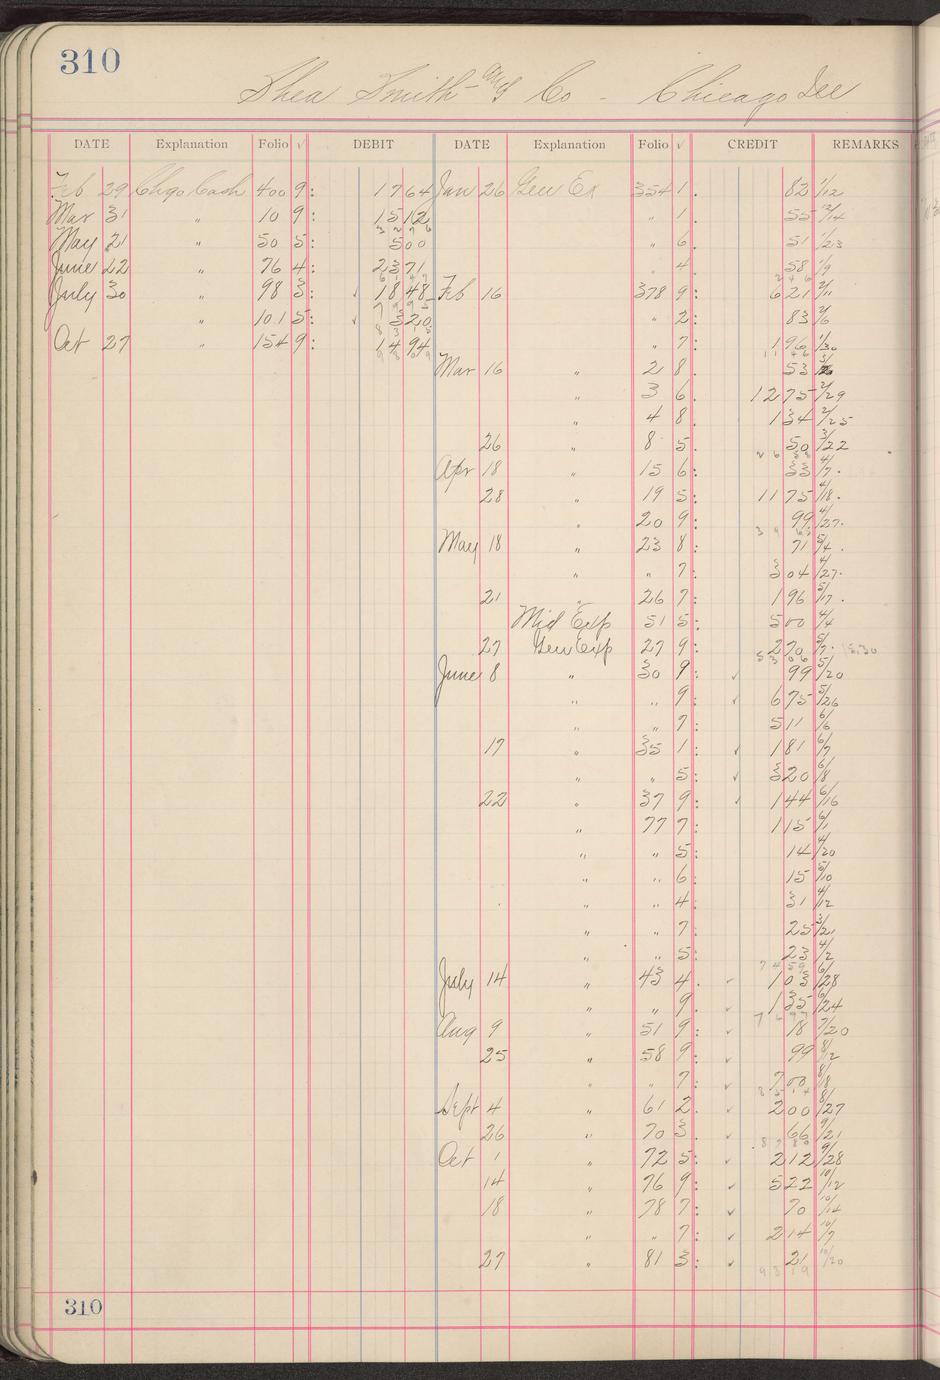 310
Shea Smith and Co - Chicago Ill
DATE Explanation Folio √ DEBIT DATE Explanation Folio √ CREDIT REMARKS
Feb 29 Chgo Cash 400 9: 17 64 Jan 26 Gen Ex 354 1. 82 1/12
Mar 31 " 10 9: 15 12 " 1. 55 12/14
32 76
May 21 " 50 5: 5 00 " 6. 51 1/23
June 22 " 76 4: 23 71 " 4 58 1/9
61 47 2 46
July 30 " 98 3: ✓ 18 48 Feb 16 378 9: 6 21 2/11
79 95
" 101 5: ✓ 3 20 " 2: 83 2/6
83 15
Oct 27 " 154 9: 14 94 " 7: 1 96 1/30
98 09 11 46
Mar 16 " 2 8. 53
" 3 6. 12 75 2/29
" 4 8. 1 34 2/25
26 " 8 5. 50 3/22
26 58
Apr 18 " 15 6: 33 4/7.
28 " 19 5: 11 75 4/18.
" 20 9: 99 4/27.
May 18 " 23 8: 71 5/4.
" " 7: 3 04 4/27.
21 " 26 7: 1 96 5/17.
Mid Exp 51 5: 5 00 4/4
27 Gen Exp 27 9: 2 70 5/7. 15.30
53 06
June 8 " 30 9: ✓ 99 5/20
" " 9: ✓ 6 75 5/26
" " 7: 5 11 6/6
17 " 35 1: ✓ 1 81 6/7
" " 5: ✓ 3 20 6/8
22 " 37 9: ✓ 1 44 6/16
" 77 7: 1 15 6/1
" " 5: 14 4/20
" " 6: 15 5/10
" " 4: 31 4/12
" " 7: 25 3/21
" " 5: 23 4/2
74 59
July 14 " 43 4. ✓ 1 03 6/28
" " 9. ✓ 1 35 6/24
76 97
Aug 9 " 51 9: ✓ 18 7/20
25 " 58 9: ✓ 99 8/12
" " 7: ✓ 7 00 8/18
85 14
Sept 4 " 61 2. ✓ 2 00 8/27
26 " 70 3. ✓ 66 9/21
87 80
Oct 1 " 72 5: ✓ 2 12 9/28
14 " 76 9: ✓ 5 22 10/12
18 " 78 7: ✓ 70 10/14
" " 7: ✓ 2 14 10/7
27 " 81 3: ✓ 21 10/20
98 19
310